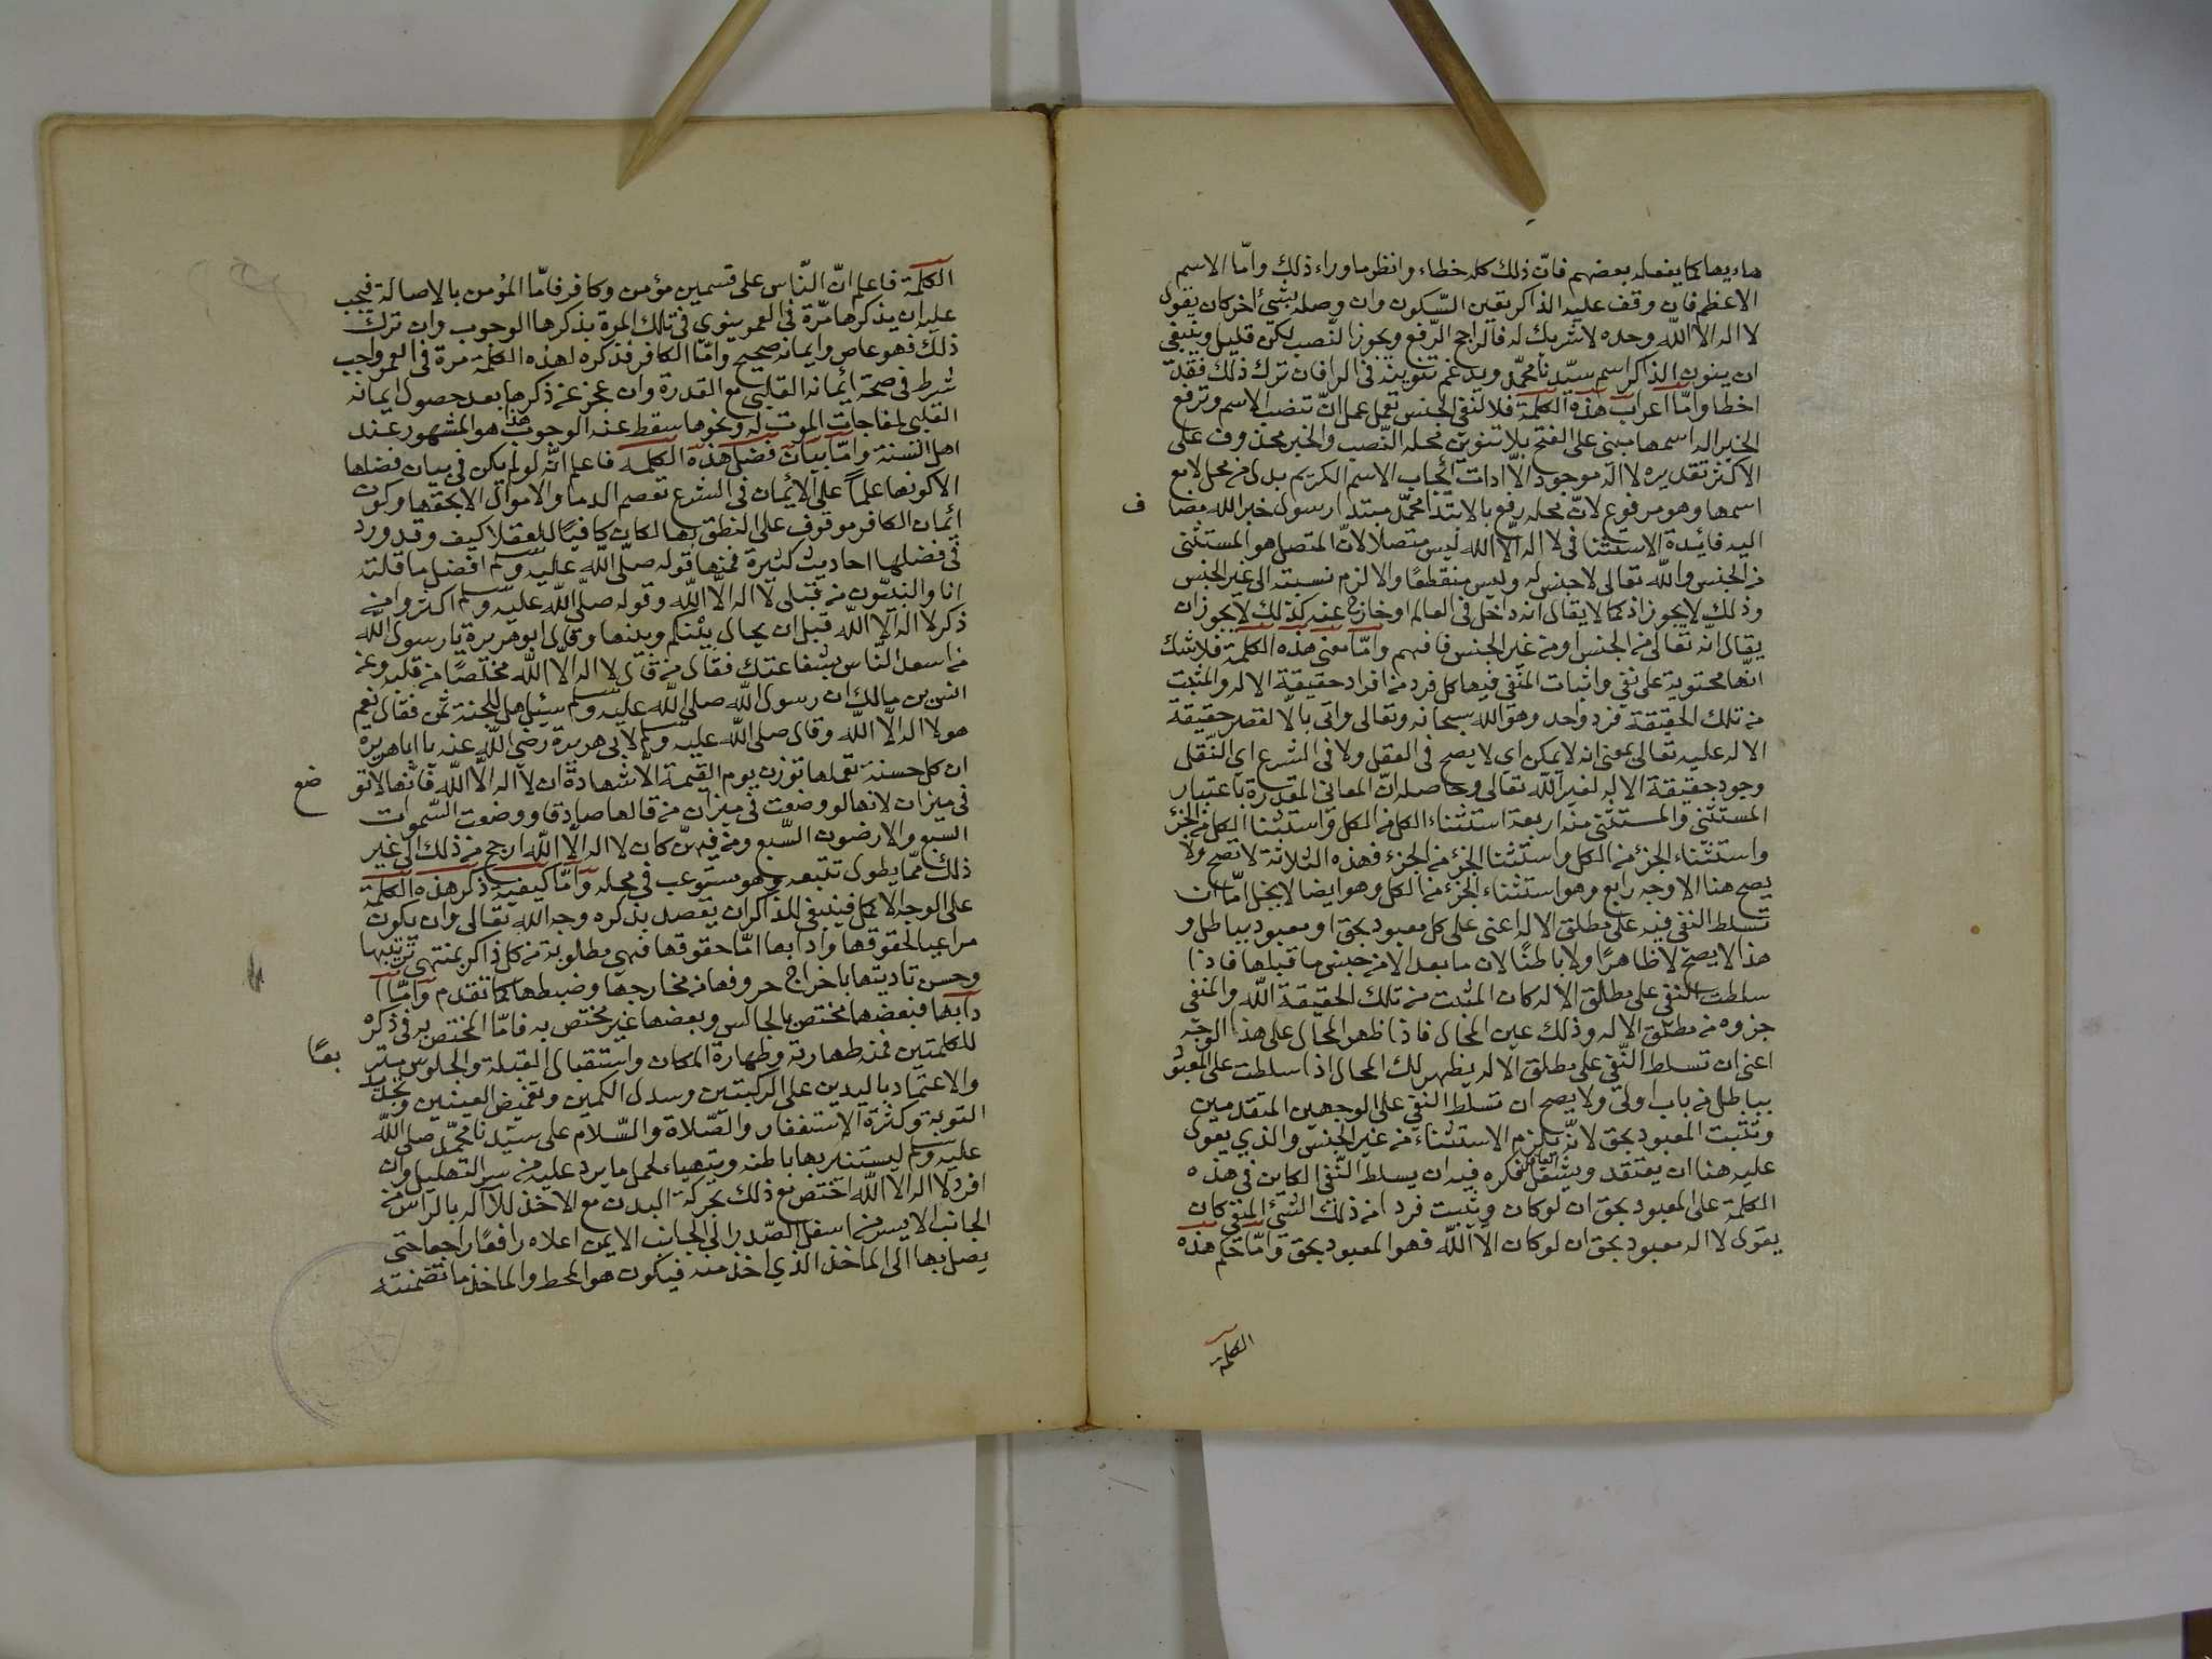 هاديها كما يفعله بعضهم فان ذلك كله خطاء وانظر ما وراء ذلك وامّا الاسم
الاعظم فان وقف عليه الذاكر تعين السّكون وان وصله بشيئ اخر كان يقول
لا اله الا الله وحده لا شريك له فالراجح الرّفع ويجوز النّصب لكن قليل وينبغي
ان ينون الذاكر اسم سيّدنا محمّد ويدغم تنوينه في الرا فان ترك ذلك فقد
اخطا وامّا اعراب هذه الكلمة فلا لنفي الجنس تعمل عمل انّ تنصب الاسم وترفع
الخبر اله اسمها مبني على الفتح بلا تنوين محله النّصب والخبر محذوف على
الاكثر تقديره لا اله موجود الّا ادات ايجاب الاسم الكريم بدل من محل لا مع
اسمها وهو مرفوع لانّ محله رفع بالابتدا محمّد مبتدا رسول خبر الله مضاف
اليه فائدة الاستثنا في لا اله الّا الله ليس متصلا لانّ المتصل هو المستثنى
من الجنس والله تعالى لا جنس له وليس منقطعًا والا لزم نسبته الى غير الجنس
وذلك لا يجوز اذ كما لا يقال انه داخل في العالم او خارج عنه كذلك لا يجوز ان
يقال انّه تعالى من الجنس او من غير الجنس فافهم وامّا معنى هذه الكلمة فلا شك
انّها محتوية على نفي واثبات المنفي فيها كل فرد من افراد حقيقة الاله والمثبت
من تلك الحقيقة فرد واحد وهو الله سبحانه وتعالى واتى بالا لقصر حقيقة
الاله عليه تعالى بمعنى انه لا يمكن اي لا يصح في العقل ولا في الشرع اي النّقل
وجود حقيقة الاله لغير الله تعالى وحاصله انّ المعاني المقدرة باعتبار
المستثنى والمستثنى منه اربعة استثناء الكل من الكل واستثنا الكل من الجزء
واستثناء الجزء من الكل واستثنا الجزء من الجزء فهذه الثلاثة لا تصح ولا
يصح هنا الا وجه رابع وهو استثناء الجزء من الكل وهو ايضا لا يخل امّا ان
تسلط النفي فيه على مطلق الاله اعني على كل معبود بحق او معبود بباطل و
هذا لا يصح لا ظاهرًا ولا باطنًا لان ما بعد الا من جنس ما قبلها فاذا
سلطت النفي على مطلق الاله كان المثبت من تلك الحقيقة الله والمنفي
جزوه من مطلق الاله وذلك عين المحال فاذا ظهر المحال على هذا الوجه
اعني ان تسلط النّفي على مطلق الاله يظهر لك المحال اذا سلطت على المعبود
بباطل من باب اولى ولا يصح ان تسلط النفي على الوجهين المتقدمين
وتثبت المعبود بحق لانّه يلزم الاستثناء من غير الجنس والذي يعول
عليه هنا ان يعتقد ويشغل العاقل فكره فيه ان يسلط النّفي الكاين في هذه
الكلمة على المعبود بحق ان لو كان ويثبت فردا من ذلك الشيئ المنفي كان
يقول لا اله معبود بحق ان لو كان الّا الله فهو المعبود بحق وامّا حكم هذه
الكلمة
الكلمة فاعلم انّ النّاس على قسمين مؤمن وكافر فامّا المؤمن بالاصالة فيجب
عليه ان يذكرها مرّة في العمر ينوي في تلك المرة بذكرها الوجوب وان ترك
ذلك فهو عاص وايمانه صحيح وامّا الكافر فذكره لهذه الكلمة مرة في العمر واجب
شرط في صحة ايمانه القلبي مع القدرة وان عجز عن ذكرها بعد حصول ايمانه
القلبي لمفاجات الموت له ونحوها سقط عنه الوجوب هذا هو المشهور عند
اهل السّنة وامّا بيان فضل هذه الكلمة فاعلم انّه لو لم يكن في بيان فضلها
الا كونها علماً على الايمان في الشرع تعصم الدما والاموال الا بحقها وكون
ايمان الكافر موقوف على النطق بها لكان كافيًا للعقلا كيف وقد ورد
في فضلها احاديث كثيرة فمنها قوله صلّى الله عليه وسلم افضل ما قلته
انا والنبيّون من قبلي لا اله الّا الله وقوله صلّى الله عليه وسلم اكثروا من
ذكر لا اله الّا الله قبل ان يحال بينكم وبينها وقال ابو هريرة يا رسول الله
من اسعد النّاس بشفاعتك فقال من قال لا اله الّا الله مخلصًا من قلبه وعن
انس بن مالك ان رسول الله صلى الله عليه وسلم سئيل هل للجنة ثمن فقال نعم
هو لا اله الّا الله وقال صلى الله عليه وسلم لابي هريرة رضي الله عنه يا ابا هريرة
ان كل حسنة تعملها توزن يوم القيمة الّا شهادة ان لا اله الّا الله فانّها لا توضع
في ميزان لانها لو وضعت في ميزان من قالها صادقا ووضعت السّموات
السبع والارضون السّبع ومن فيهنّ كان لا اله الّا الله ارجح من ذلك الى غير
ذلك ممّا يطول تتبعه وهو مستوعب في محله وامّا كيفية ذكر هذه الكلمة
على الوجه الاكمل فينبغي للذاكر ان يقصد بذكره وجه الله تعالى وان يكون
مراعيا لحقوقها وادابها امّا حقوقها فهي مطلوبة من كل ذاكر بمنتهى ترتيبها
وحسن تاديتها باخراج حروفها من مخارجها وضبطها كما تقدم وامّا ا
دابها فبعضها مختص بالمجالس وبعضها غير مختص به فامّا المختص به في ذكره
للكلمتين فمنه طهارته وطهارة المكان واستقبال القبلة والجلوس متربعًا
والاعتماد باليدين على الركبتين وسدل الكمين وتغميض العينين وتجديد
التوبة وكثرة الاستغفار والصّلاة والسّلام على سيّدنا محمّد صلى الله
عليه وسلم ليستنير بها باطنه ويتهياء لحمل ما يرد عليه من سر التهليل وان
افرد لا اله الّا الله اختص مع ذلك بحركة البدن مع الاخذ للا اله بالراس من
الجانب الايسر من اسفل الصّدر الى الجانب الايمن اعلاه رافعًا راجعا حتى
يصل بها الى الماخذ الذي اخذ منه فيكون هو المحط والماخذ ما تضمنته